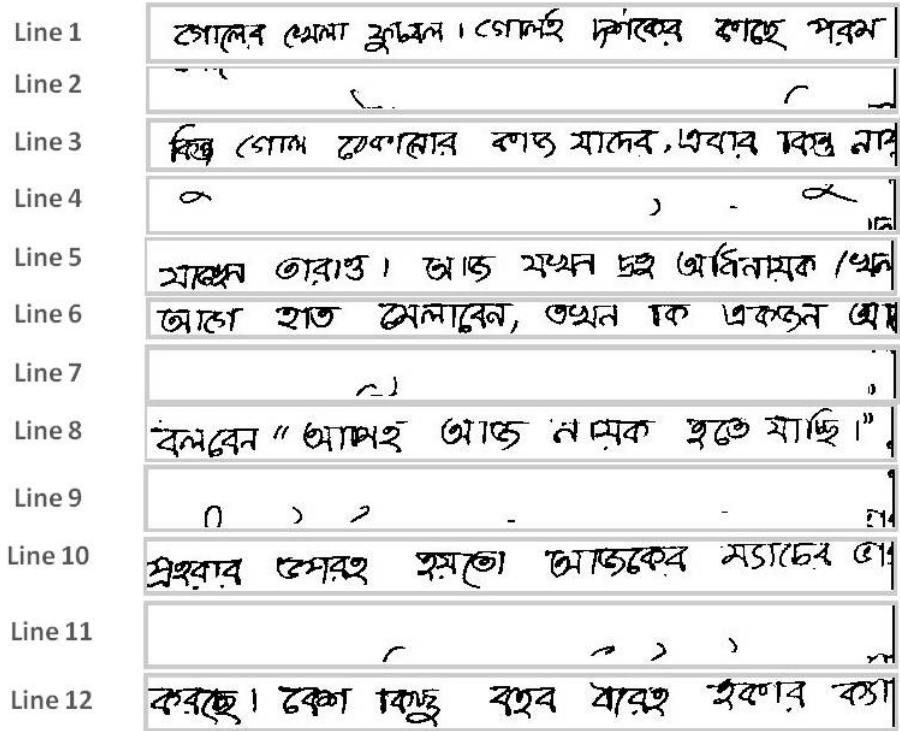 Line 1 গোলের খেলা ফুটবল। গোলই দর্শকের কাছে পরম
Line 2
Line 3 কিন্তু গোল ঠেকানোর কাজ যাদের, এবার কিন্তু
Line 4
Line 5 যাচ্ছেন তারাও। আজ যখন দুই অধিনায়ক
Line 6 আগে হাত মেলাবেন, তখন কি একজন
Line 7
Line 8 বলবেন “আমিই আজ নায়ক হতে যাচ্ছি।”
Line 9
Line 10 প্রহরার ওপরই হয়তো আজকের ম্যাচের
Line 11
Line 12 করছে। বেশ কিছু বছর ধরেই